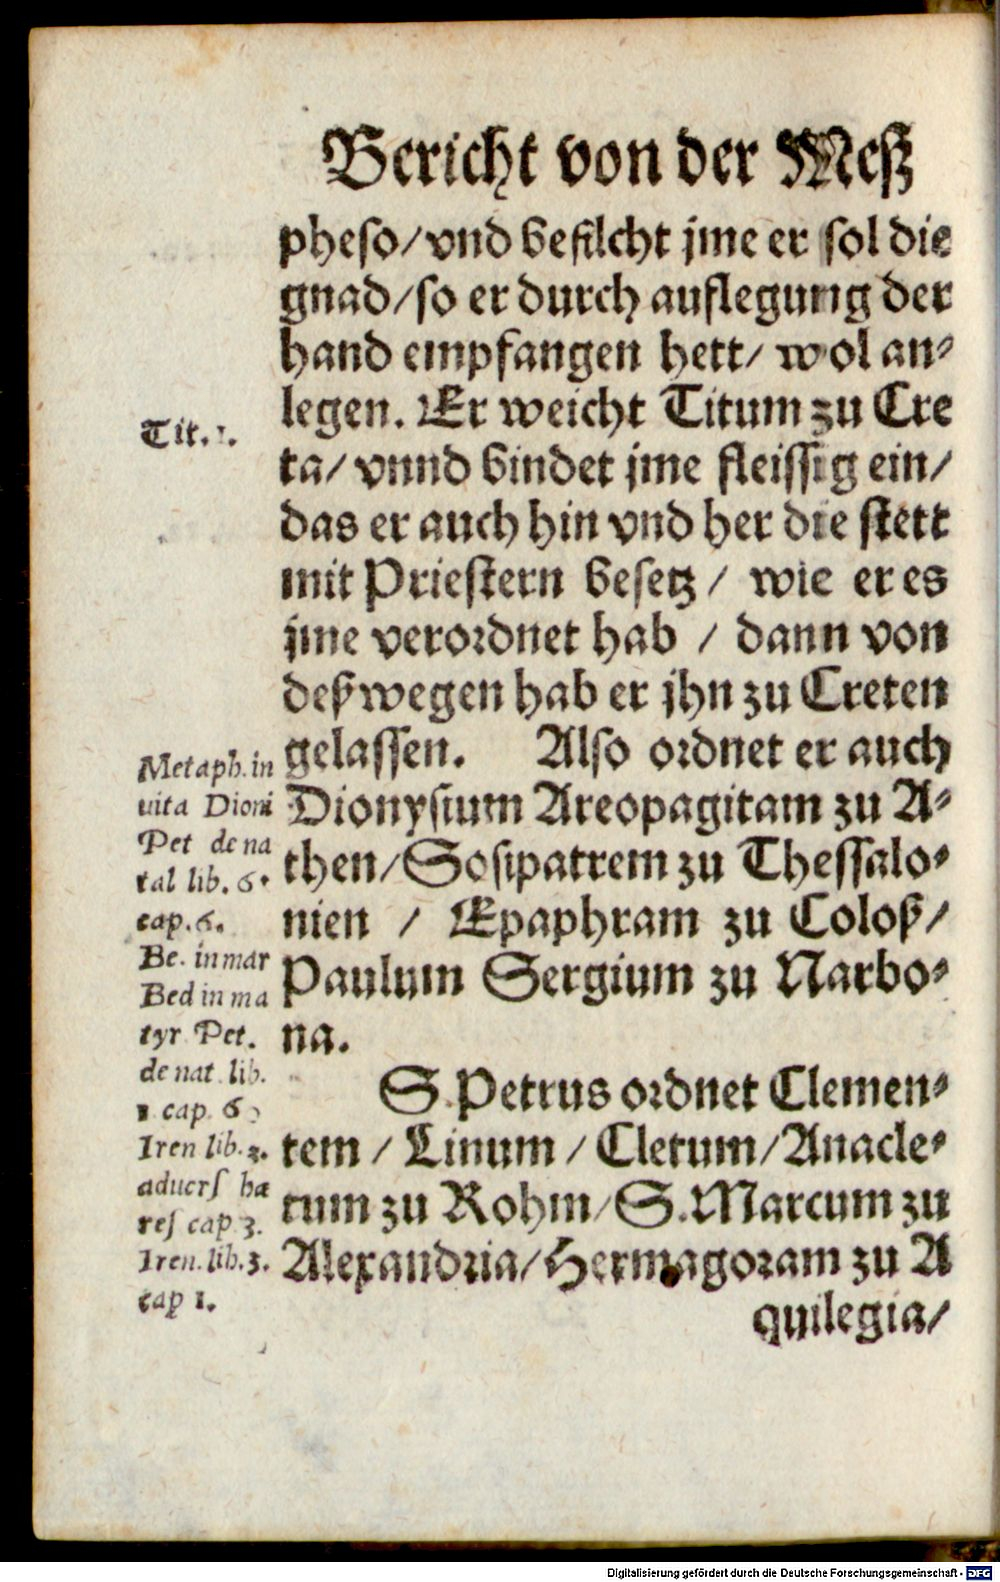 Bericht von der Meß
pheso/vnd befilcht jme er sol die
gnad/so er durch auflegung der
hand empfangen hett/ wol an-
legen. Er weicht Titum zu Cre
ta/ vnnd bindet jme fleissig ein/
das er auch hin vnd her die stett
mit Priestern besetz / wie er es
jme verordnet hab / dann von
deßwegen hab er jhn zu Creten
gelassen. Also ordnet er auch
Dionysium Areopagitam zu A-
then/Sosipatrem zu Thessalo-
nien / Epaphram zu Coloß/
Paulum Sergium zu Narbo-
na.
S. Petrus ordnet Clemen-
tem / Linum / Cletum/Anacle-
tum zu Rohm/S.Marcum zu
Alexandria/Hermagoram zu A
quilegia/
Tit. 1.
Metaph. in
uita Dioni
Pet de na
tal lib. 6.
cap. 6.
Be. in mar
Bed in ma
tyr Pet.
de nat. lib.
1 cap. 6
Iren lib. 3.
aduers hæ
res cap. 3.
Iren. lib. 3.
cap 1.
Digitalisierung gefördert durch die Deutsche Forschungsgemeinschaft - DFG